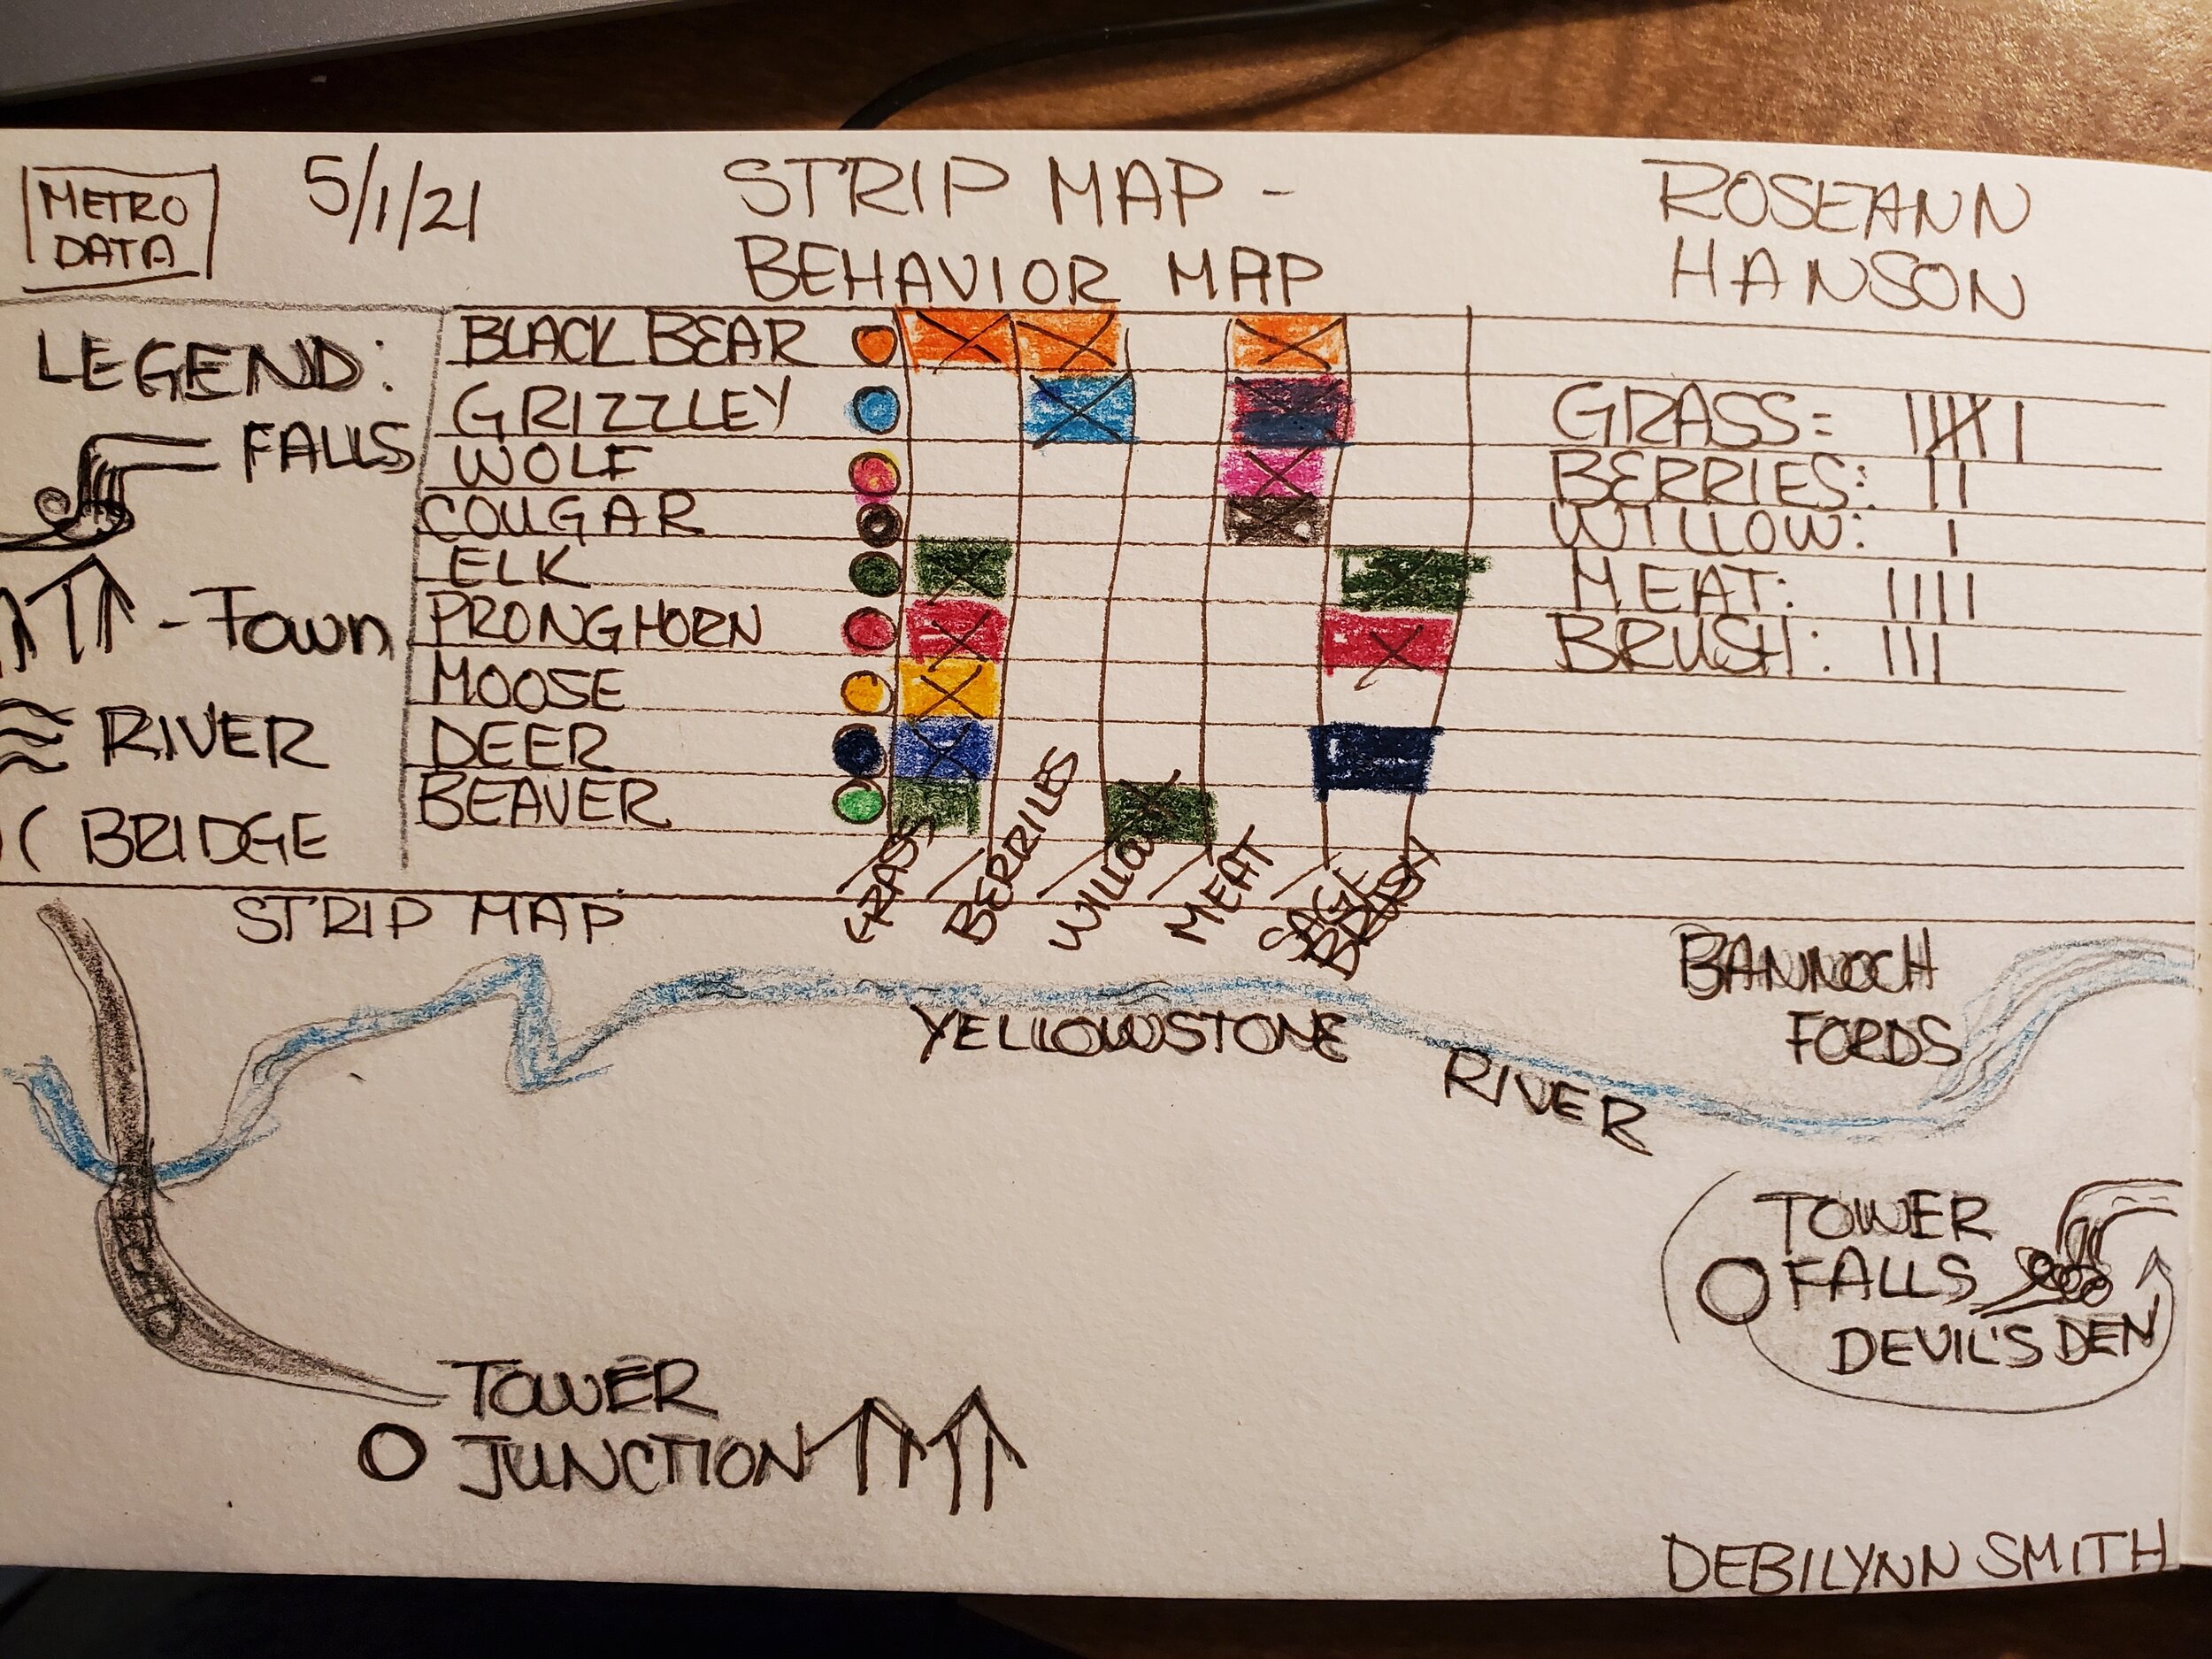 METRO
DATA
5/1/21
STRIP MAP -
BEHAVIOR MAP
ROSEANN
HANSON
LEGEND:
FALLS
- Town
RIVER
BRIDGE
BLACK BEAR
GRIZZLEY
WOLF
COUGAR
ELK
PRONGHORN
MOOSE
DEER
BEAVER
GRASS
BERRILES
WILLOW
MEAT
SAGE
BRUSH
GRASS=
BERRIES:
WILLOW:
MEAT:
BRUSH:
STRIP MAP
YELLOWSTONE
RIVER
BANNOCH
FORDS
TOWER
FALLS
DEVIL'S DEN
TOWER
JUNCTION
DEBILYNN SMITH